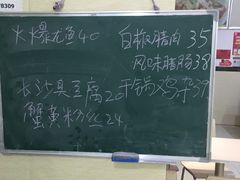 78309
火爆尤鱼40
白椒腊肉35
风味腊肠38
长沙臭豆腐20
干锅鸡杂37
蟹黄粉丝24